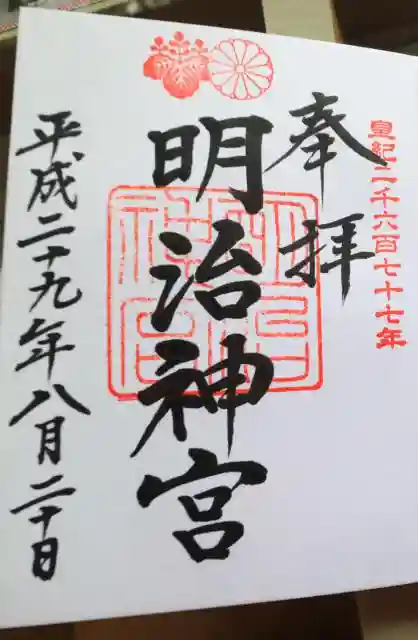 皇紀二千六百七十七年
奉拝
明治神宮
平成二十九年八月二十日